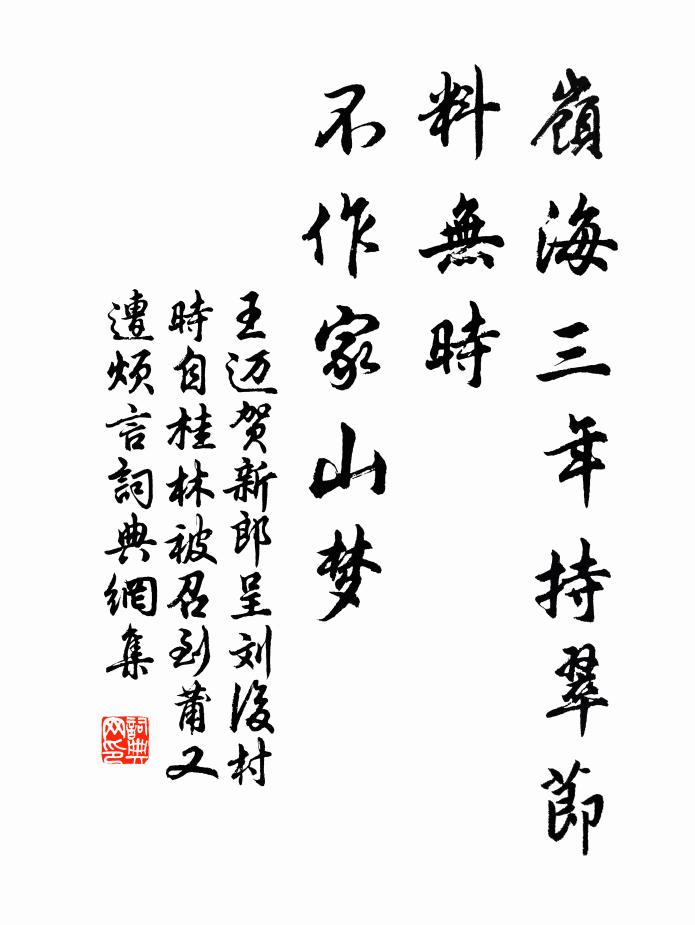 嶺海三年持翠節
料無時
不作家山梦
王迈贺新郎呈刘後村
時自桂林被召到莆又
遭煩言詞典網集
詞典
网印